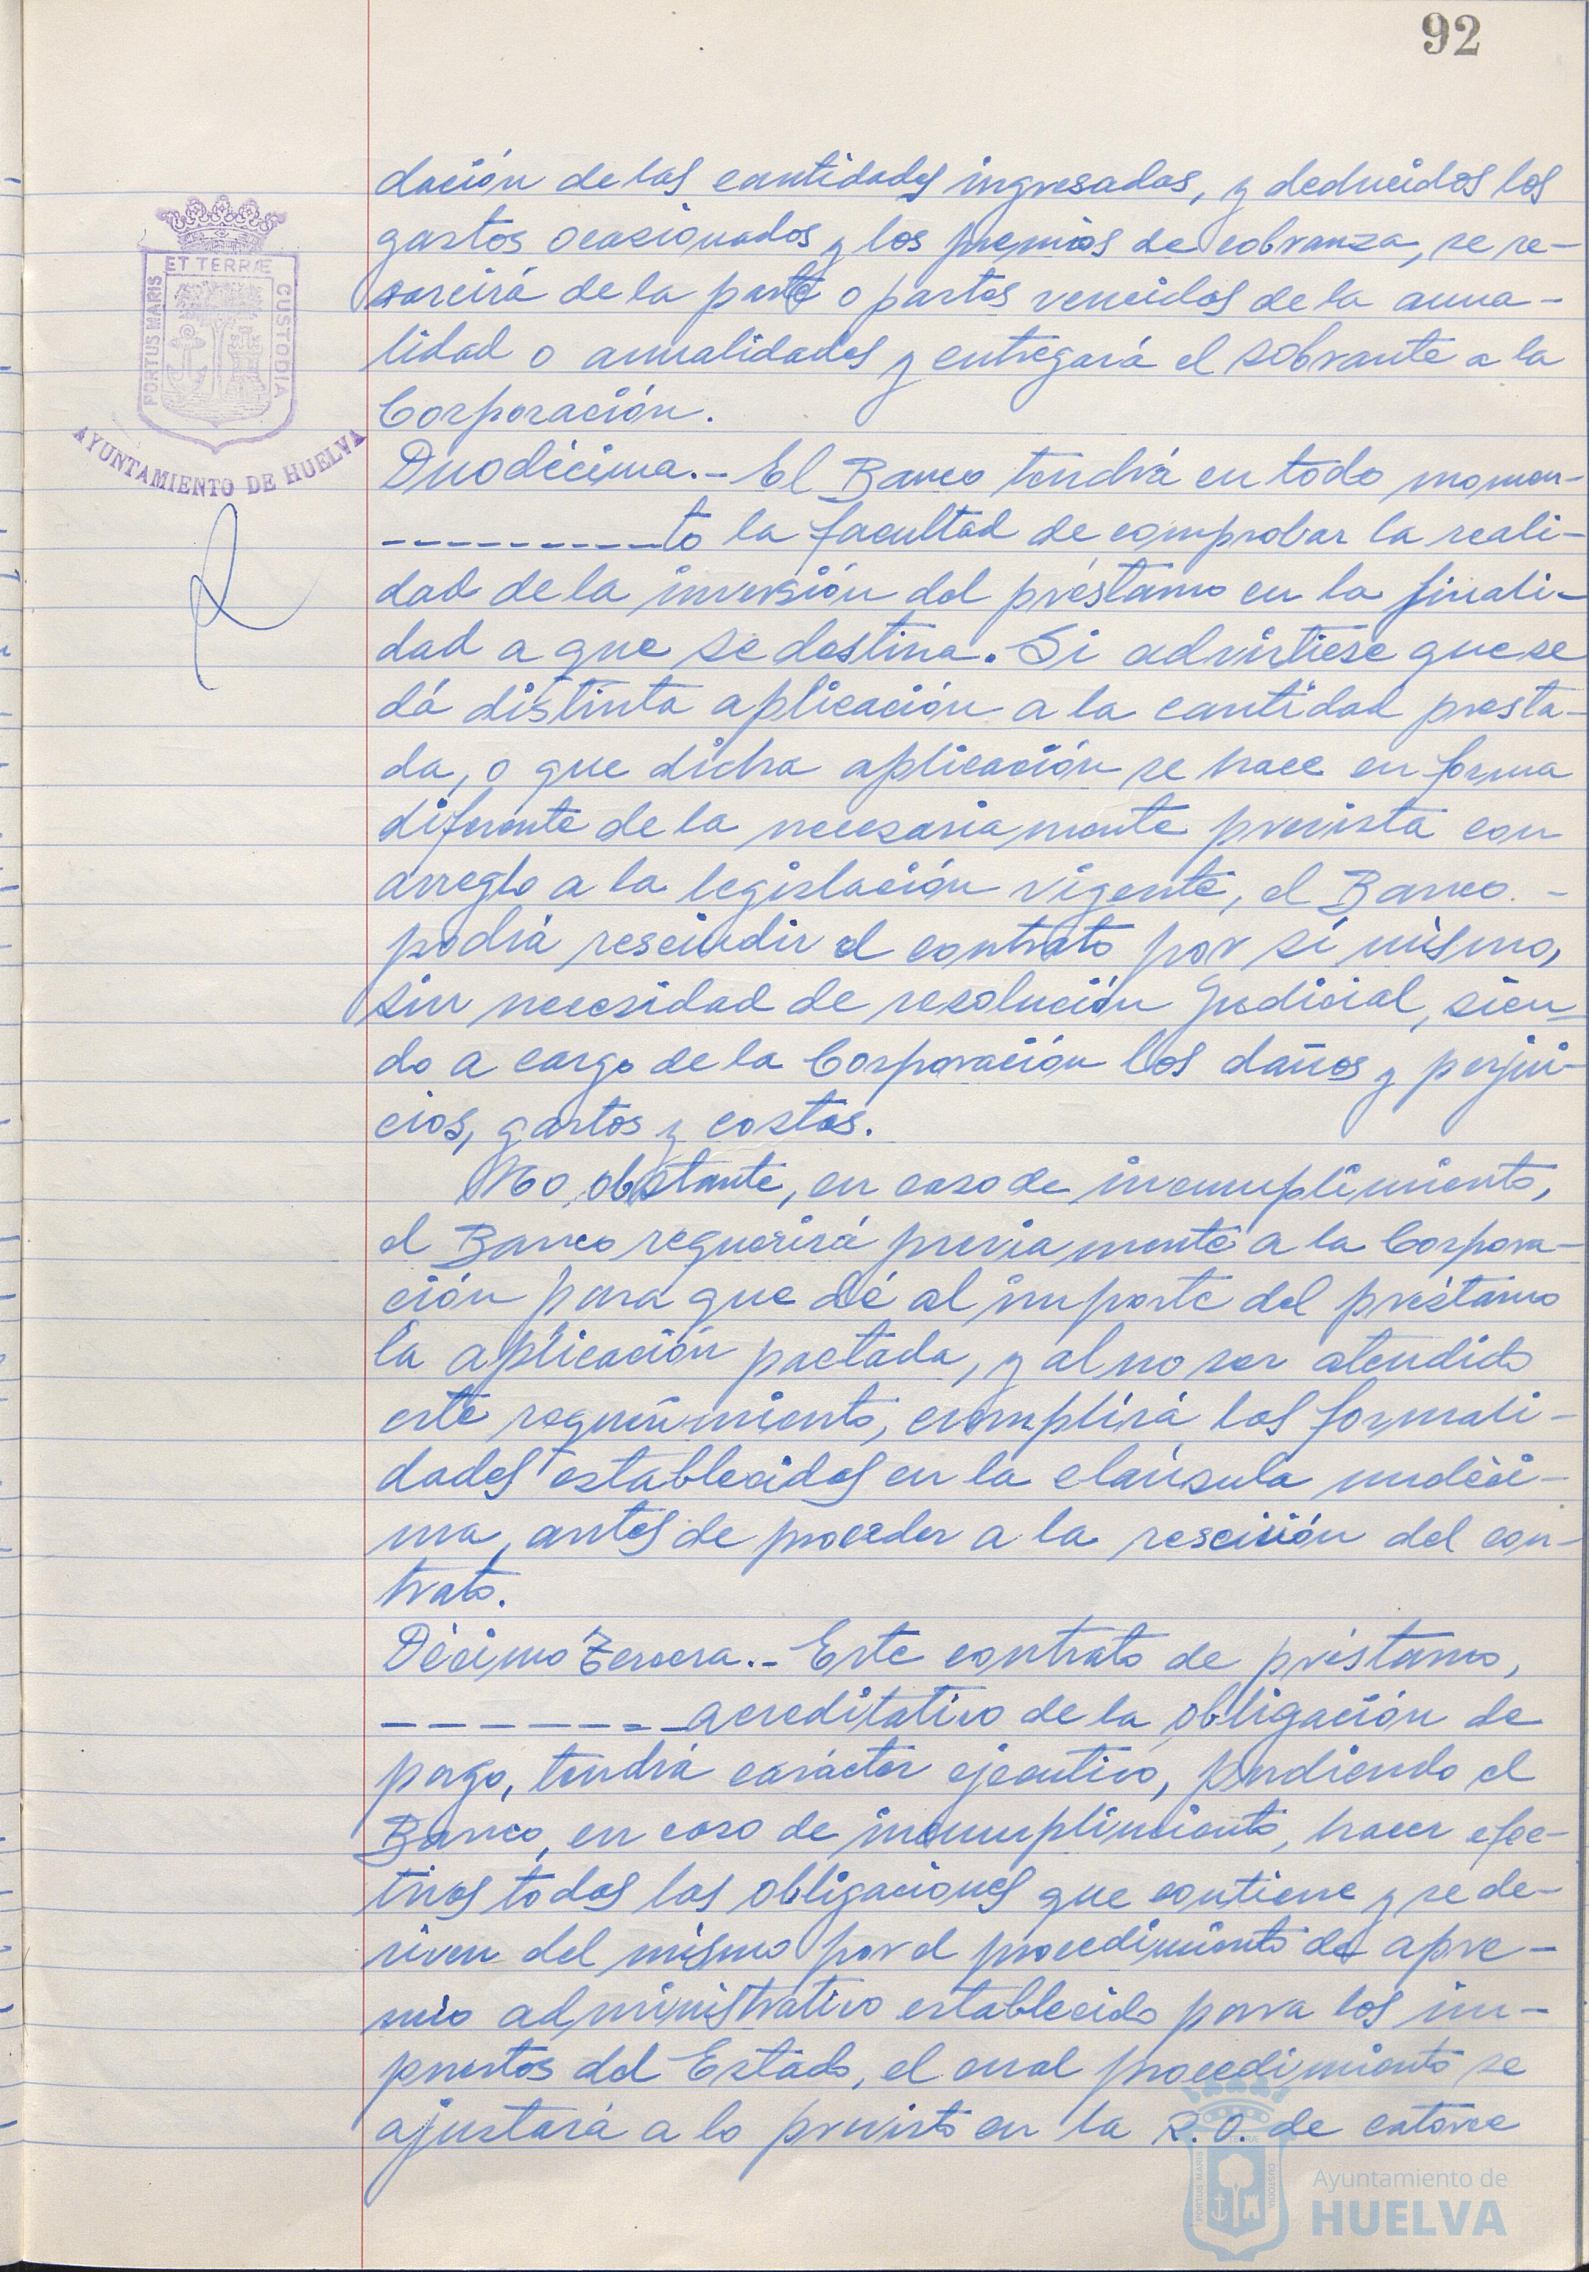 92
dación de las cantidades ingresadas, y deducidos los
gastos ocasionados y los premios de cobranza, se re-
sarcirá de la parte o partes vencidas de la anua-
lidad o anualidades y entregará el sobrante a la
Corporación.
Duodécima.- El Banco tendrá en todo momen-
---------to la facultad de comprobar la reali-
dad de la inversión del préstamo en la finali-
dad a que se destina. Si advirtiese que se
dá distinta aplicación a la cantidad presta-
da, o que dicha aplicación se hace en forma
diferente de la necesariamente prevista con
arreglo a la legislación vigente, el Banco -
podrá rescindir el contrato por sí mismo,
sin necesidad de resolución Judicial, sien-
do a cargo de la Corporación los daños y perjui-
cios, gastos y costas.
No obstante, en caso de incumplimiento,
el Banco requerirá previamente a la Corpora-
ción para que dé al importe del préstamo
la aplicación pactada, y al no ser atendido
este requerimiento, cumplirá las formali-
dades establecidas en la claúsula undéci-
ma, antes de proceder a la rescisión del con-
trato.
Décimo Tercera.- Este contrato de préstamo,
--------acreditativo de la obligación de
pago, tendrá carácter ejecutivo, pudiendo el
Banco, en caso de incumplimiento, hacer efec-
tivas todas las obligaciones que contiene y se de-
riven del mismo por el procedimiento de apre-
mio administrativo establecido para los im-
puestos del Estado, el cual procedimiento se
ajustará a lo previsto en la R.O. de catorce
PORTUS MARIS
ET TERRÆ
CUSTODIA
AYUNTAMIENTO DE HUELVA
PORTUS MARIS
CUSTODIA
Ayuntamiento de
HUELVA